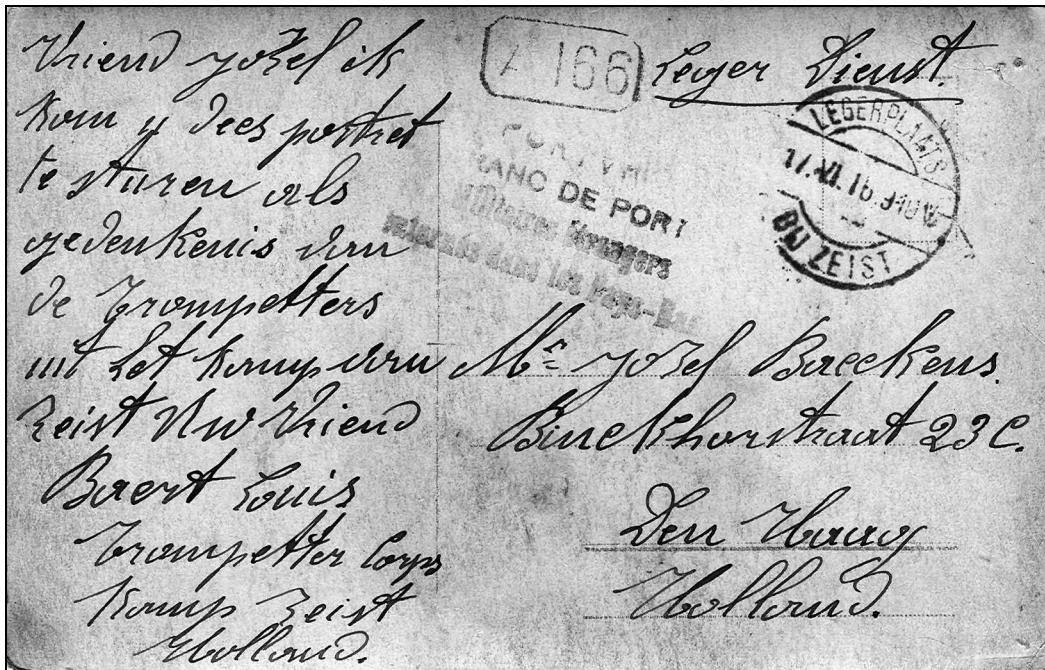 Vriend jozef ik
kom u dees portret
te sturen als
gedenkenis van
de trompetters
uit het kamp van
Zeist Uw Vriend
Baert Louis
Trompetter Corps
Kamp Zeist
Holland.
A 166
Leger Dienst.
LEGERPLAATS
17.VI.16
BIJ ZEIST
FRANC DE PORT
Militaires étrangers
internés dans les Pays-Bas
Mr jozef Baeckens.
Binckhorstraat 23 C.
Den Haag
Holland.